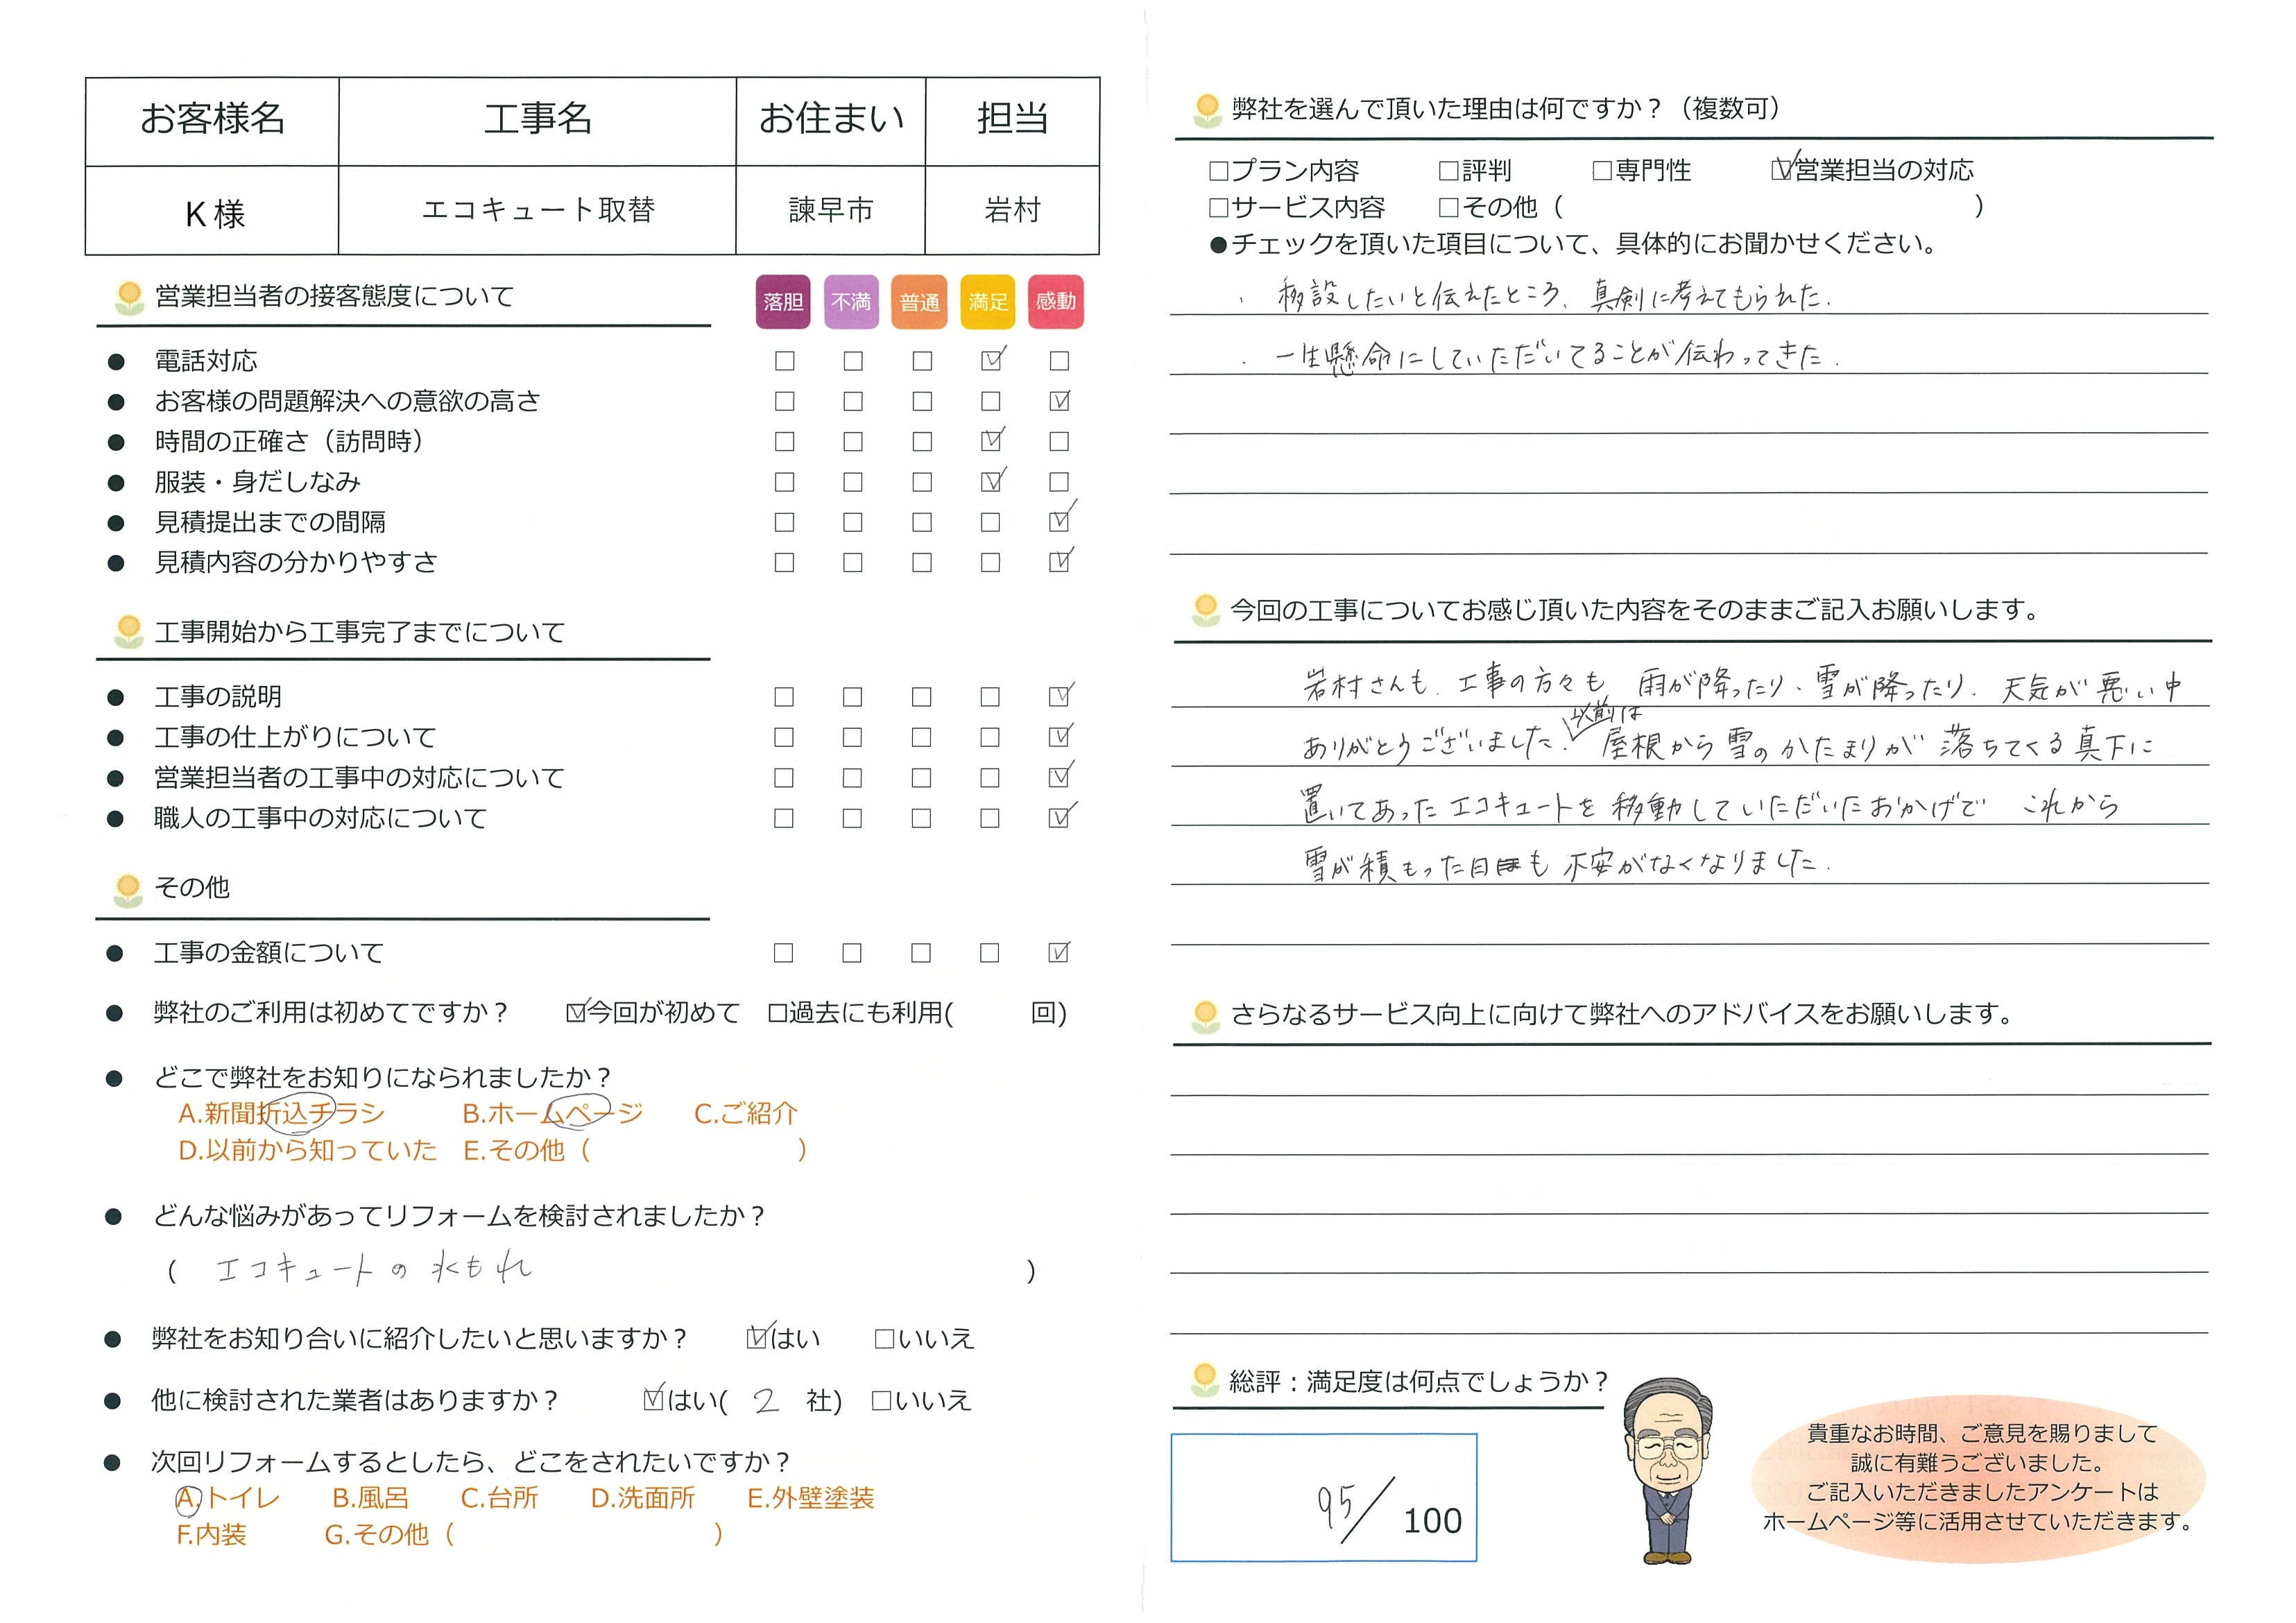 お客様名 工事名 お住まい 担当
K様 エコキュート取替 諫早市 岩村
営業担当者の接客態度について 落胆 不満 普通 満足 感動
● 電話対応 □ □ □ ☑ □
● お客様の問題解決への意欲の高さ □ □ □ □ ☑
● 時間の正確さ（訪問時） □ □ □ ☑ □
● 服装・身だしなみ □ □ □ ☑ □
● 見積提出までの間隔 □ □ □ □ ☑
● 見積内容の分かりやすさ □ □ □ □ ☑
工事開始から工事完了までについて
● 工事の説明 □ □ □ □ ☑
● 工事の仕上がりについて □ □ □ □ ☑
● 営業担当者の工事中の対応について □ □ □ □ ☑
● 職人の工事中の対応について □ □ □ □ ☑
その他
● 工事の金額について □ □ □ □ ☑
● 弊社のご利用は初めてですか？ ☑今回が初めて □過去にも利用( 回)
● どこで弊社をお知りになられましたか？
A.新聞折込チラシ B.ホームページ C.ご紹介
D.以前から知っていた E.その他（ ）
● どんな悩みがあってリフォームを検討されましたか？
( エコキュートの水もれ )
● 弊社をお知り合いに紹介したいと思いますか？ ☑はい □いいえ
● 他に検討された業者はありますか？ ☑はい( 2 社) □いいえ
● 次回リフォームするとしたら、どこをされたいですか？
A.トイレ B.風呂 C.台所 D.洗面所 E.外壁塗装
F.内装 G.その他（ ）
弊社を選んで頂いた理由は何ですか？（複数可）
□プラン内容 □評判 □専門性 ☑営業担当の対応
□サービス内容 □その他（ ）
●チェックを頂いた項目について、具体的にお聞かせください。
・ 移設したいと伝えたところ、真剣に考えてもられた.
・ 一生懸命にしていただいてることが伝わってきた.
今回の工事についてお感じ頂いた内容をそのままご記入お願いします。
岩村さんも、工事の方々も 雨が降ったり、雪が降ったり、天気が悪い中
ありがとうございました. 以前は 屋根から雪のかたまりが 落ちてくる真下に
置いてあったエコキュートを 移動していただいたおかげで これから
雪が積もった日も 不安がなくなりました.
さらなるサービス向上に向けて弊社へのアドバイスをお願いします。
総評：満足度は何点でしょうか？
95/100
貴重なお時間、ご意見を賜りまして
誠に有難うございました。
ご記入いただきましたアンケートは
ホームページ等に活用させていただきます。